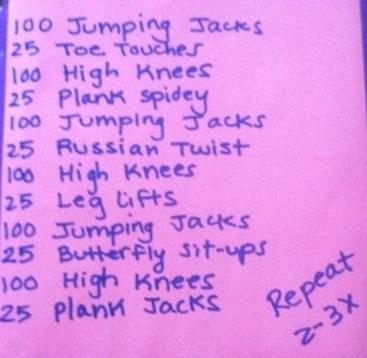 100 Jumping Jacks
25 Toe Touches
100 High Knees
25 Plank spidey
100 Jumping Jacks
25 Russian Twist
100 High Knees
25 Leg Lifts
100 Jumping Jacks
25 Butterfly sit-ups
100 High Knees
25 Plank Jacks
Repeat
2-3x